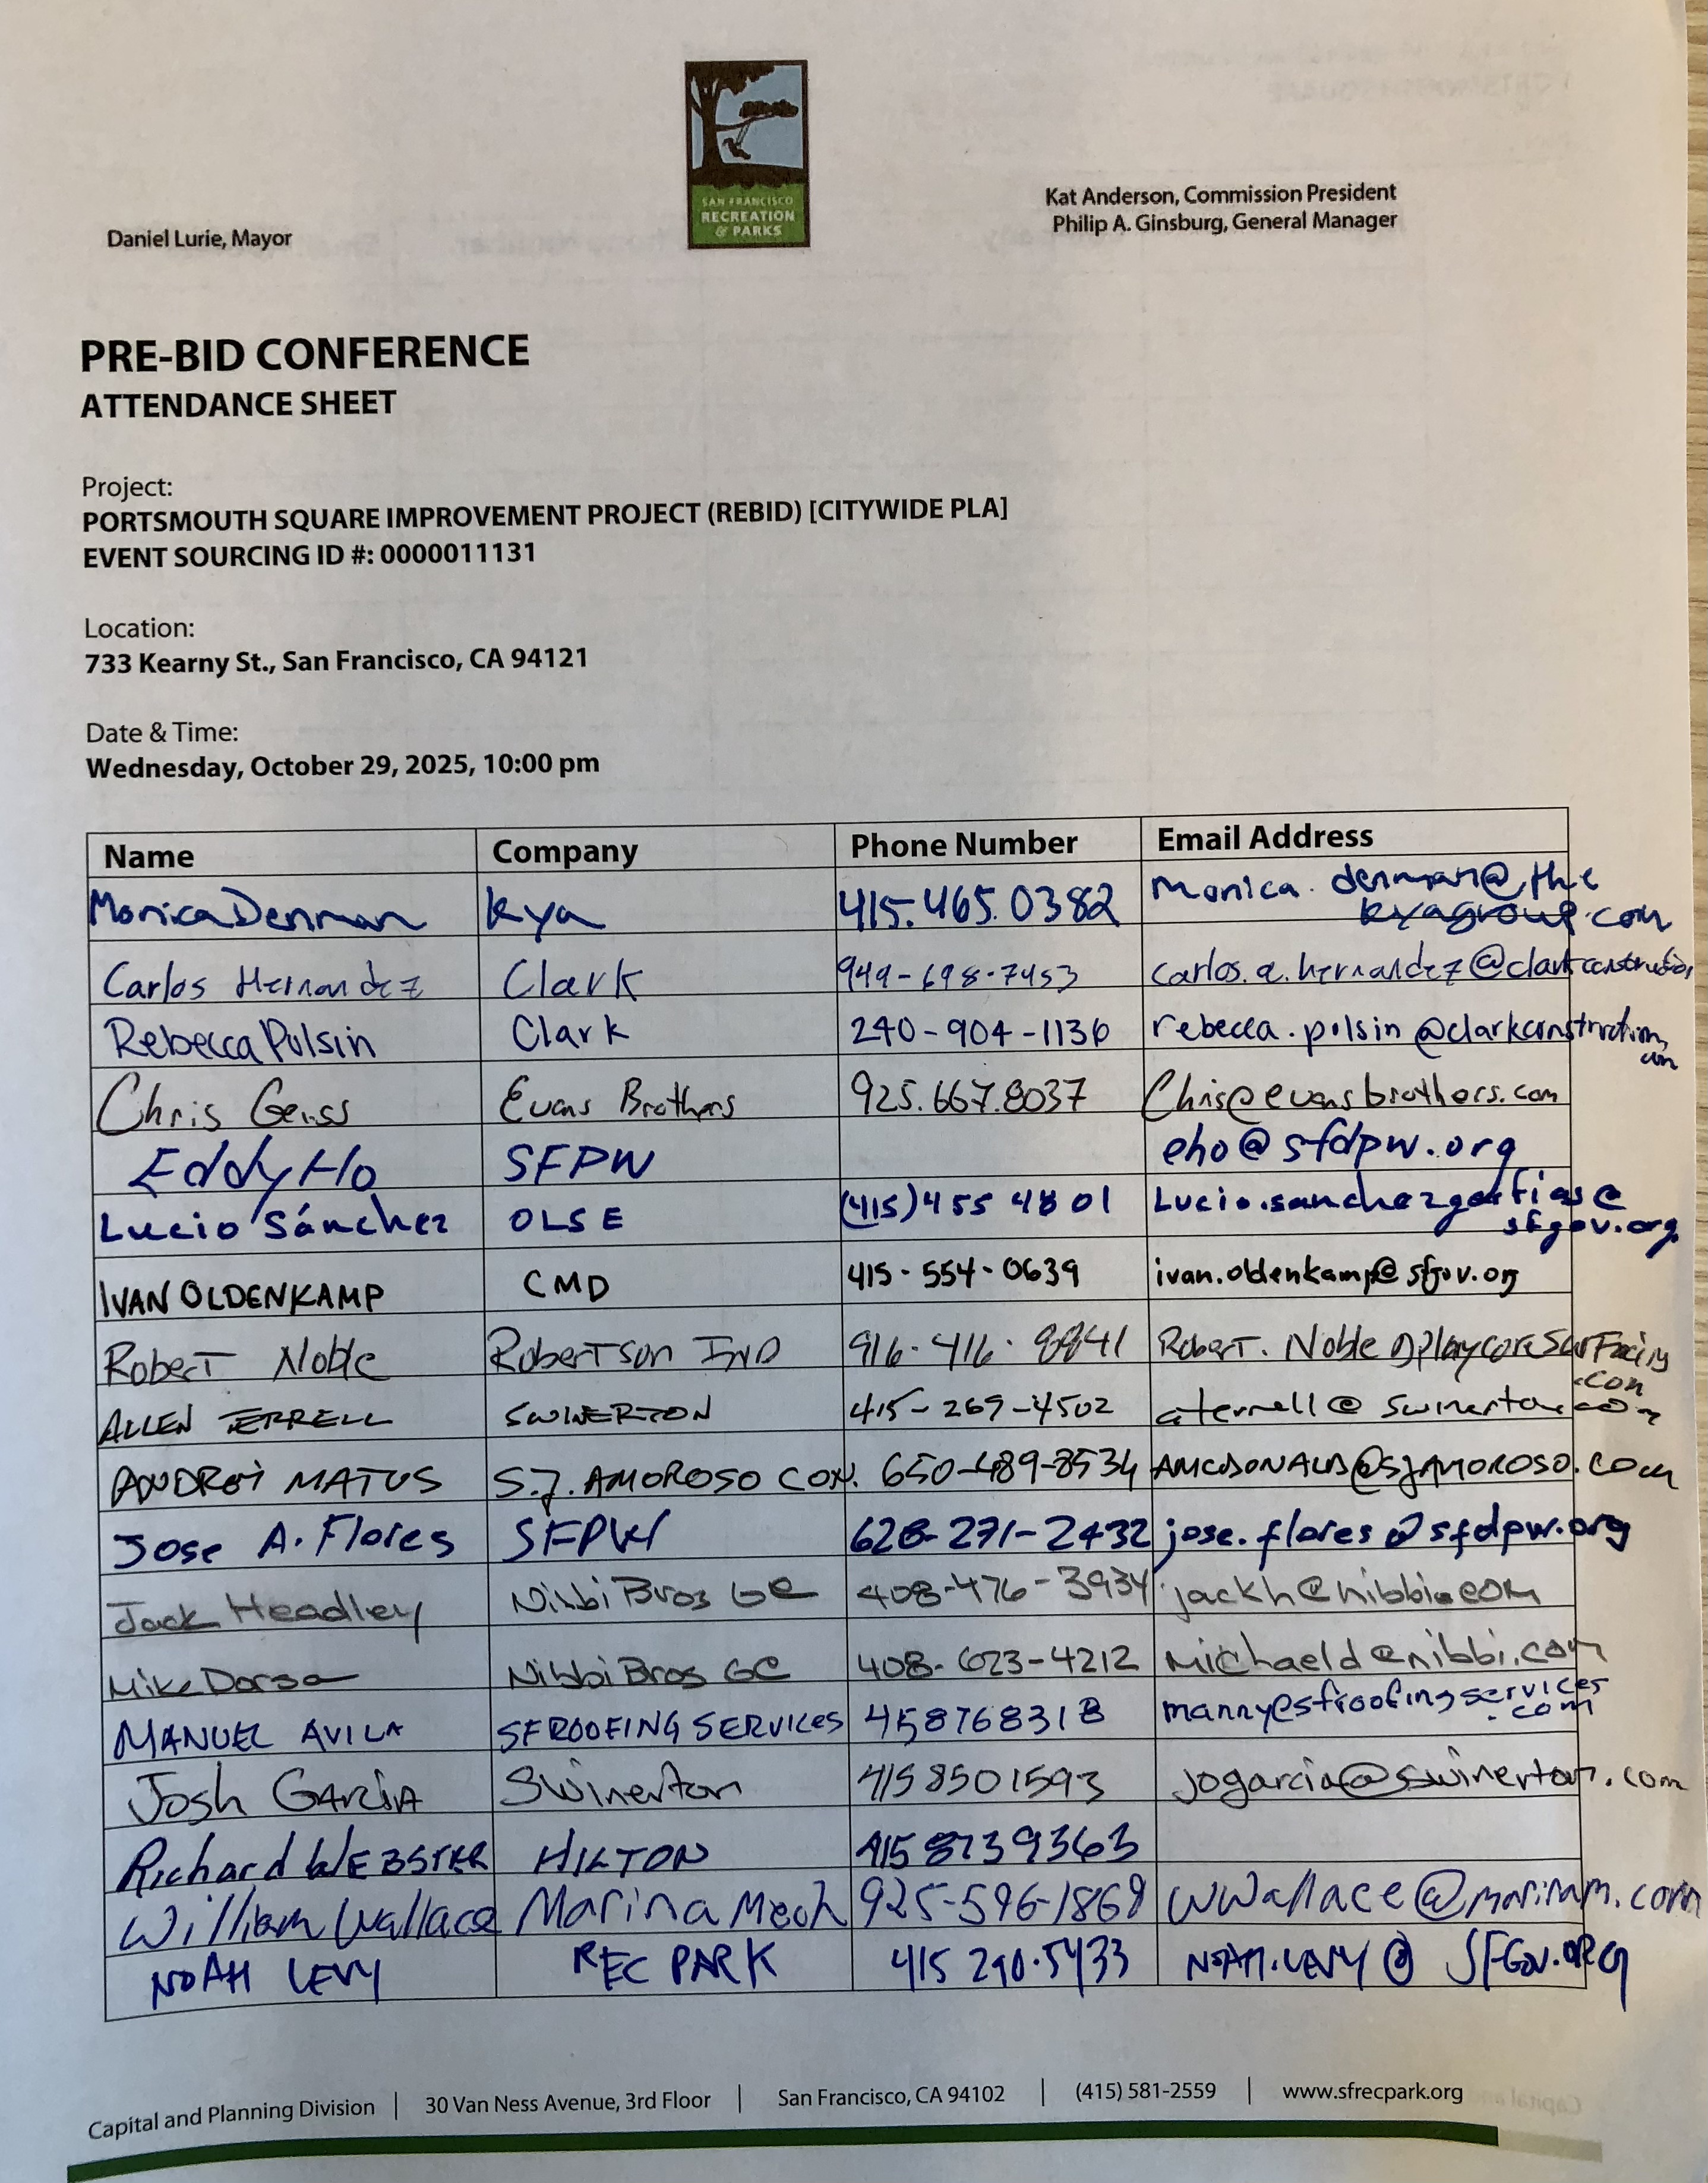 SAN FRANCISCO
RECREATION
& PARKS
Daniel Lurie, Mayor
Kat Anderson, Commission President
Philip A. Ginsburg, General Manager
PRE-BID CONFERENCE
ATTENDANCE SHEET
Project:
PORTSMOUTH SQUARE IMPROVEMENT PROJECT (REBID) [CITYWIDE PLA]
EVENT SOURCING ID #: 0000011131
Location:
733 Kearny St., San Francisco, CA 94121
Date & Time:
Wednesday, October 29, 2025, 10:00 pm
Name Company Phone Number Email Address
Monica Denman Kya 415.465.0382 monica.denman@the
kyagroup.com
Carlos Hernandez Clark 949-698-7453 carlos.a.hernandez@clarkconstruction
Rebecca Polsin Clark 240-904-1136 rebecca.polsin@clarkconstruction.
com
Chris Geiss Evans Brothers 925.667.8037 Chris@evansbrothers.com
Eddy Ho SFPW eho@sfdpw.org
Lucio Sánchez OLSE (415)455 4801 Lucio.sanchezgarfias@
sfgov.org
IVAN OLDENKAMP CMD 415-554-0639 ivan.oldenkamp@sfgov.org
Robert Noble Robertson IND 916-416- Robert.Noble@playcoresurfacing
.com
ALLEN TERRELL SWINERTON 415-269-4502 aterrell@swinerton.com
ANDREI MATUS S.J. AMOROSO CON. 650-489-8534 AMCDONALD@SJAMOROSO.COM
Jose A. Flores SFPW 628-271-2432 jose.flores@sfdpw.org
Jack Headley Nibbi Bros GC 408-476-3934 jackh@nibbi.com
Mike Dorsa Nibbi Bros GC 408-623-4212 michaeld@nibbi.com
MANUEL AVILA SFROOFING SERVICES 458768318 manny@sfroofingservices
.com
Josh GARCIA Swinerton 4158501593 jogarcia@swinerton.com
Richard WEBSTER HILTON 4158739363
William Wallace Marina Mech 925-596-1869 WWallace@marinam.com
NOAH LEVY REC PARK 415 290.5433 NOAH.LEVY@SFGOV.ORG
Capital and Planning Division | 30 Van Ness Avenue, 3rd Floor | San Francisco, CA 94102 | (415) 581-2559 | www.sfrecpark.org